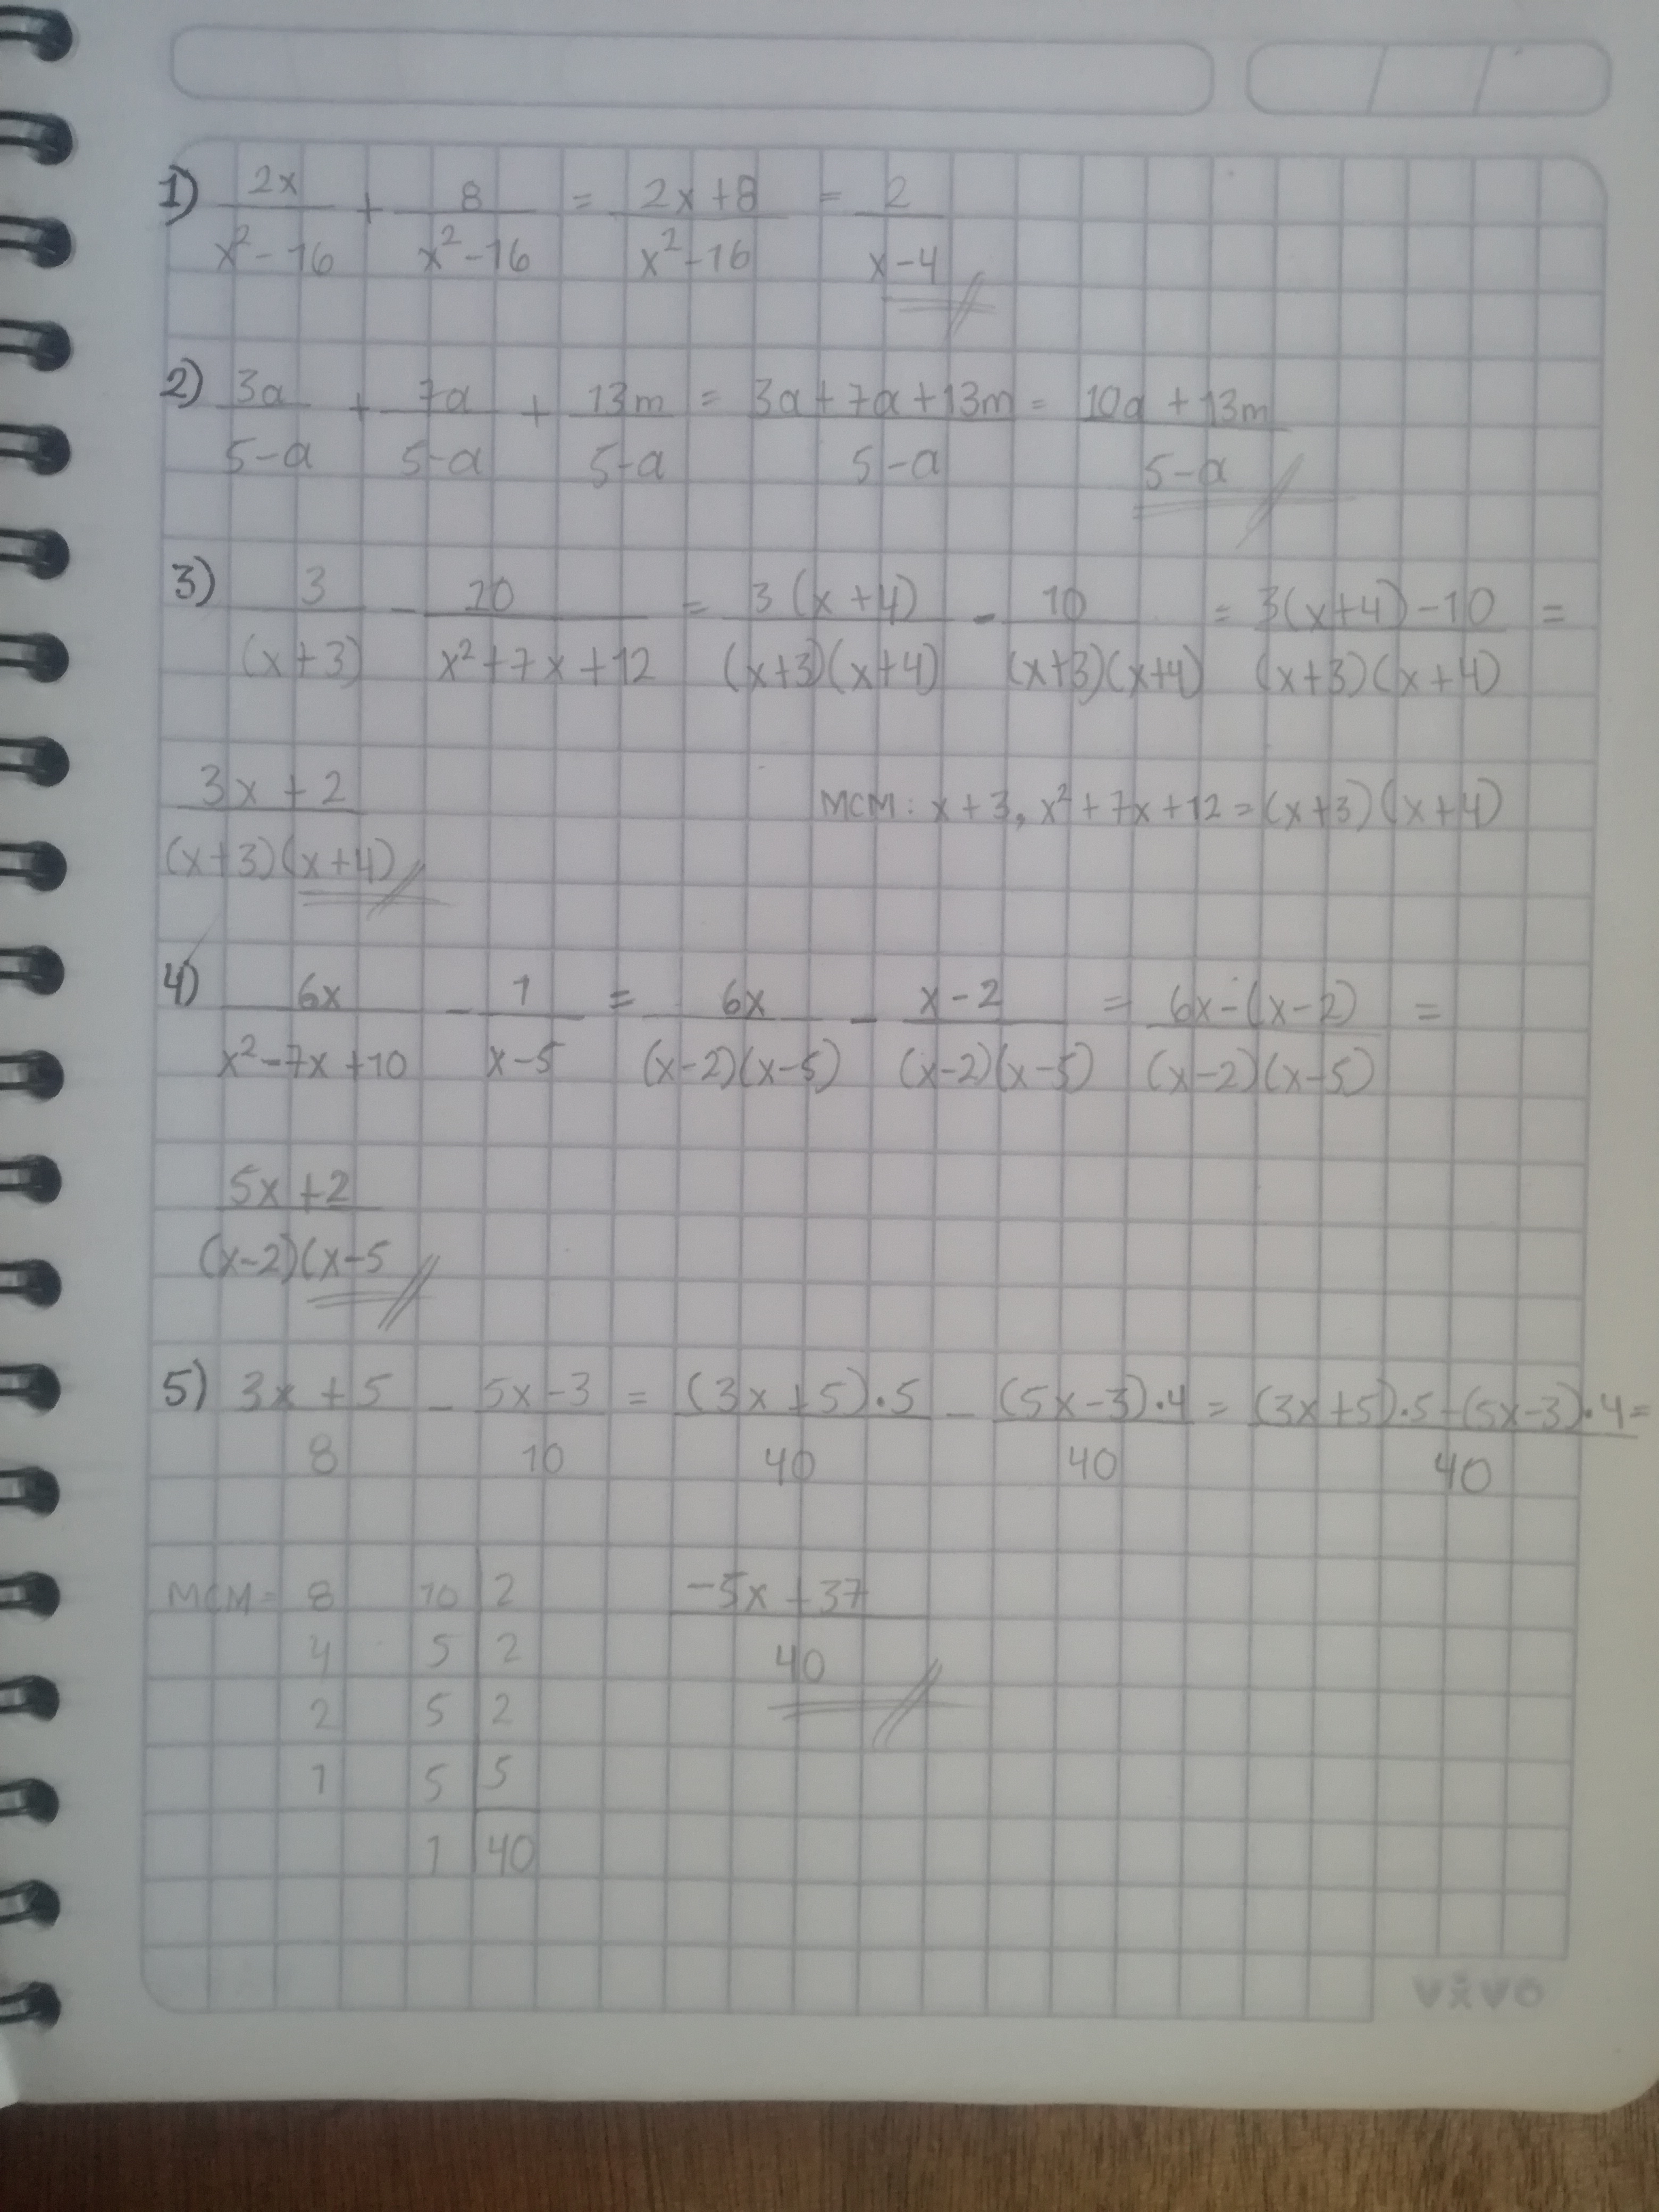 1) 2x/(x²-16) + 8/(x²-16) = (2x+8)/(x²-16) = 2/(x-4)
2) 3a/(5-a) + 7a/(5-a) + 13m/(5-a) = (3a+7a+13m)/(5-a) = (10a+13m)/(5-a)
3) 3/(x+3) - 10/(x²+7x+12) = 3(x+4)/(x+3)(x+4) - 10/(x+3)(x+4) = (3(x+4)-10)/(x+3)(x+4) =
(3x+2)/(x+3)(x+4)
MCM: x+3, x²+7x+12=(x+3)(x+4)
4) 6x/(x²-7x+10) - 1/(x-5) = 6x/(x-2)(x-5) - (x-2)/(x-2)(x-5) = (6x-(x-2))/(x-2)(x-5) =
(5x+2)/(x-2)(x-5
5) (3x+5)/8 - (5x-3)/10 = (3x+5)·5/40 - (5x-3)·4/40 = ((3x+5)·5-(5x-3)·4)/40 =
MCM= 8 10 | 2
4 5 | 2
2 5 | 2
1 5 | 5
1 | 40
(-5x+37)/40
vivo